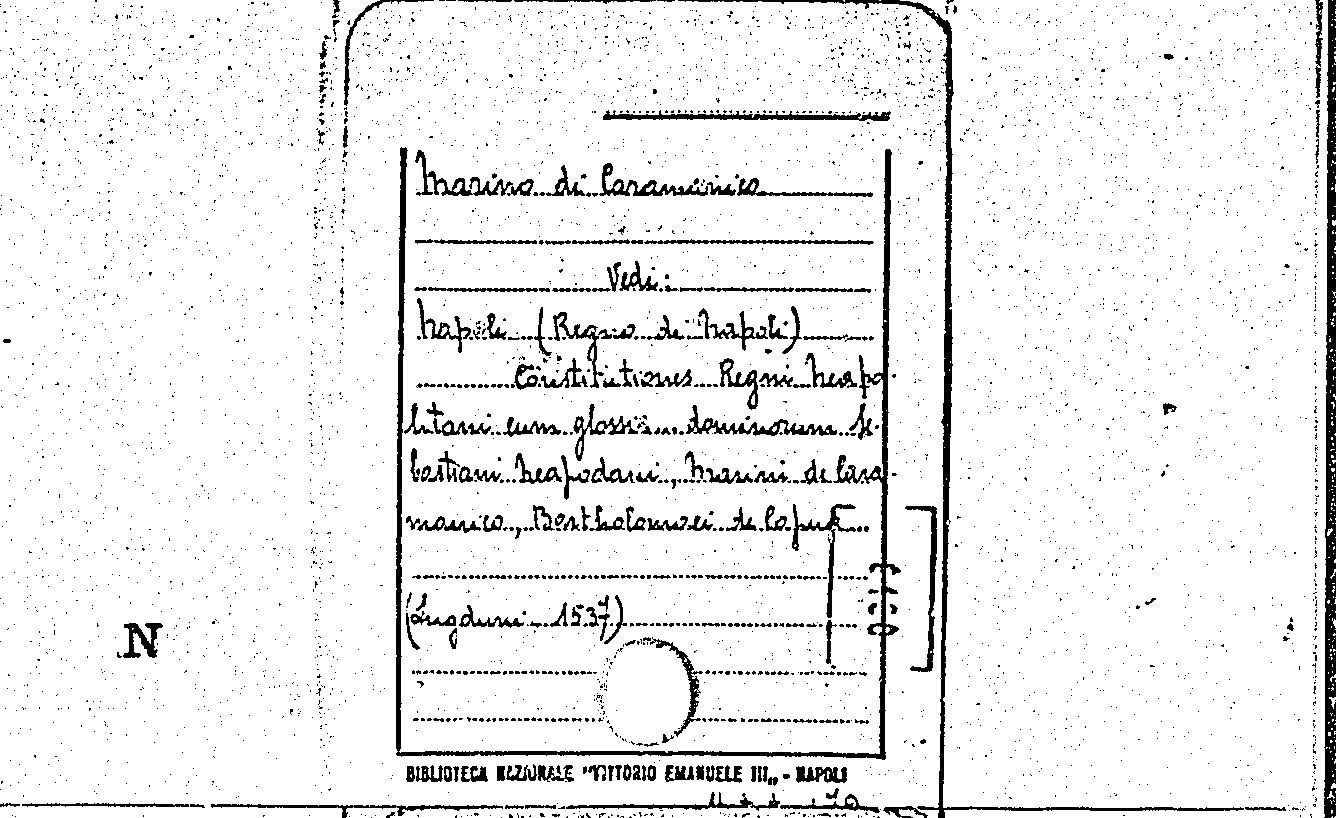 Marino di Caramanico
Vedi:
Napoli (Regno di Napoli)
Constitutiones Regni Neapo-
litani cum glossis... dominorum Se-
bastiani Neapodani, Marini de Cara-
manico, Bartholomaei de Capua...
(Lugduni 1537)
N
BIBLIOTECA NAZIONALE "VITTORIO EMANUELE III„ - NAPOLI